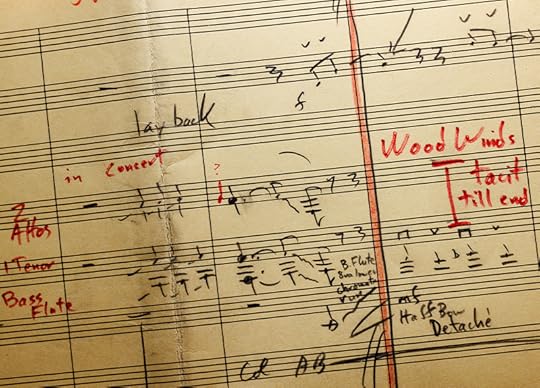 f
lay back
Wood Winds
tacit
till end
in Concert
?
2
Altos
1 Tenor
Bass
Flute
B. Flute
mf
Half Bow
Detaché
Cd AB